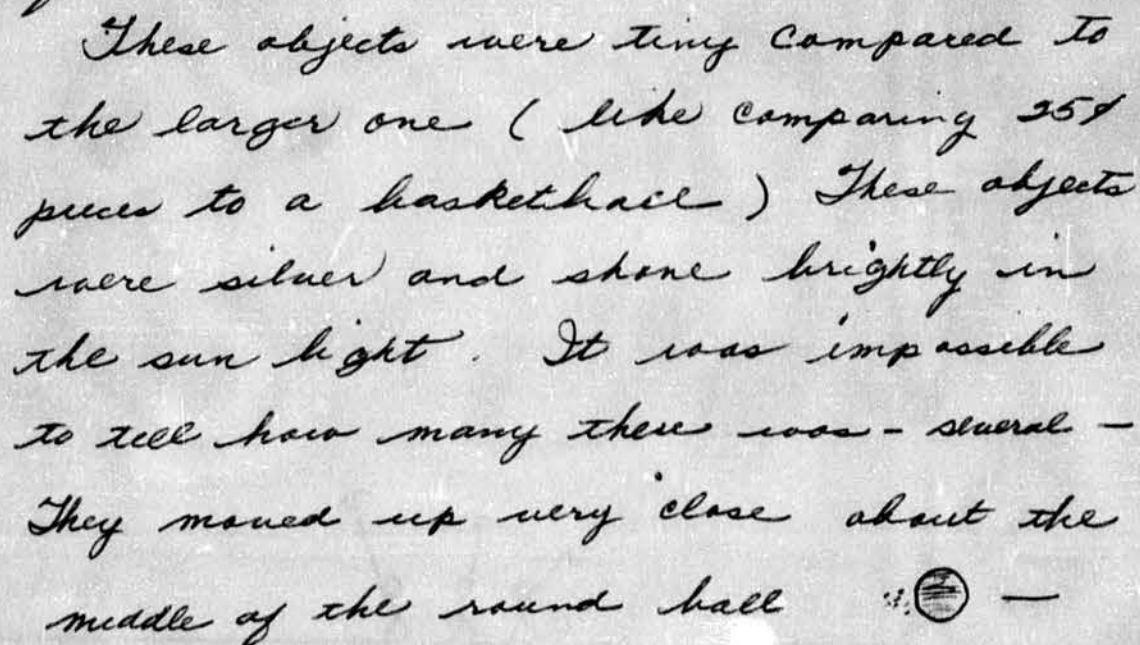 These objects were tiny compared to
the larger one ( like comparing 25¢
pieces to a basketball ) These objects
were silver and shone brightly in
the sun light. It was impossible
to tell how many there was - several -
They moved up very close about the
middle of the round ball —